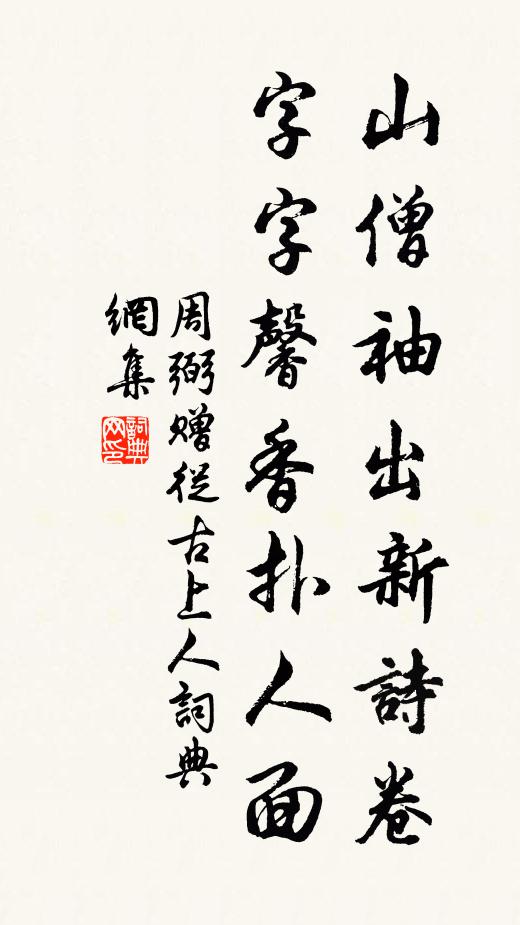 山僧袖出新詩卷
字字馨香扑人面
周弼贈從古上人詞典
網集
詞典
网印